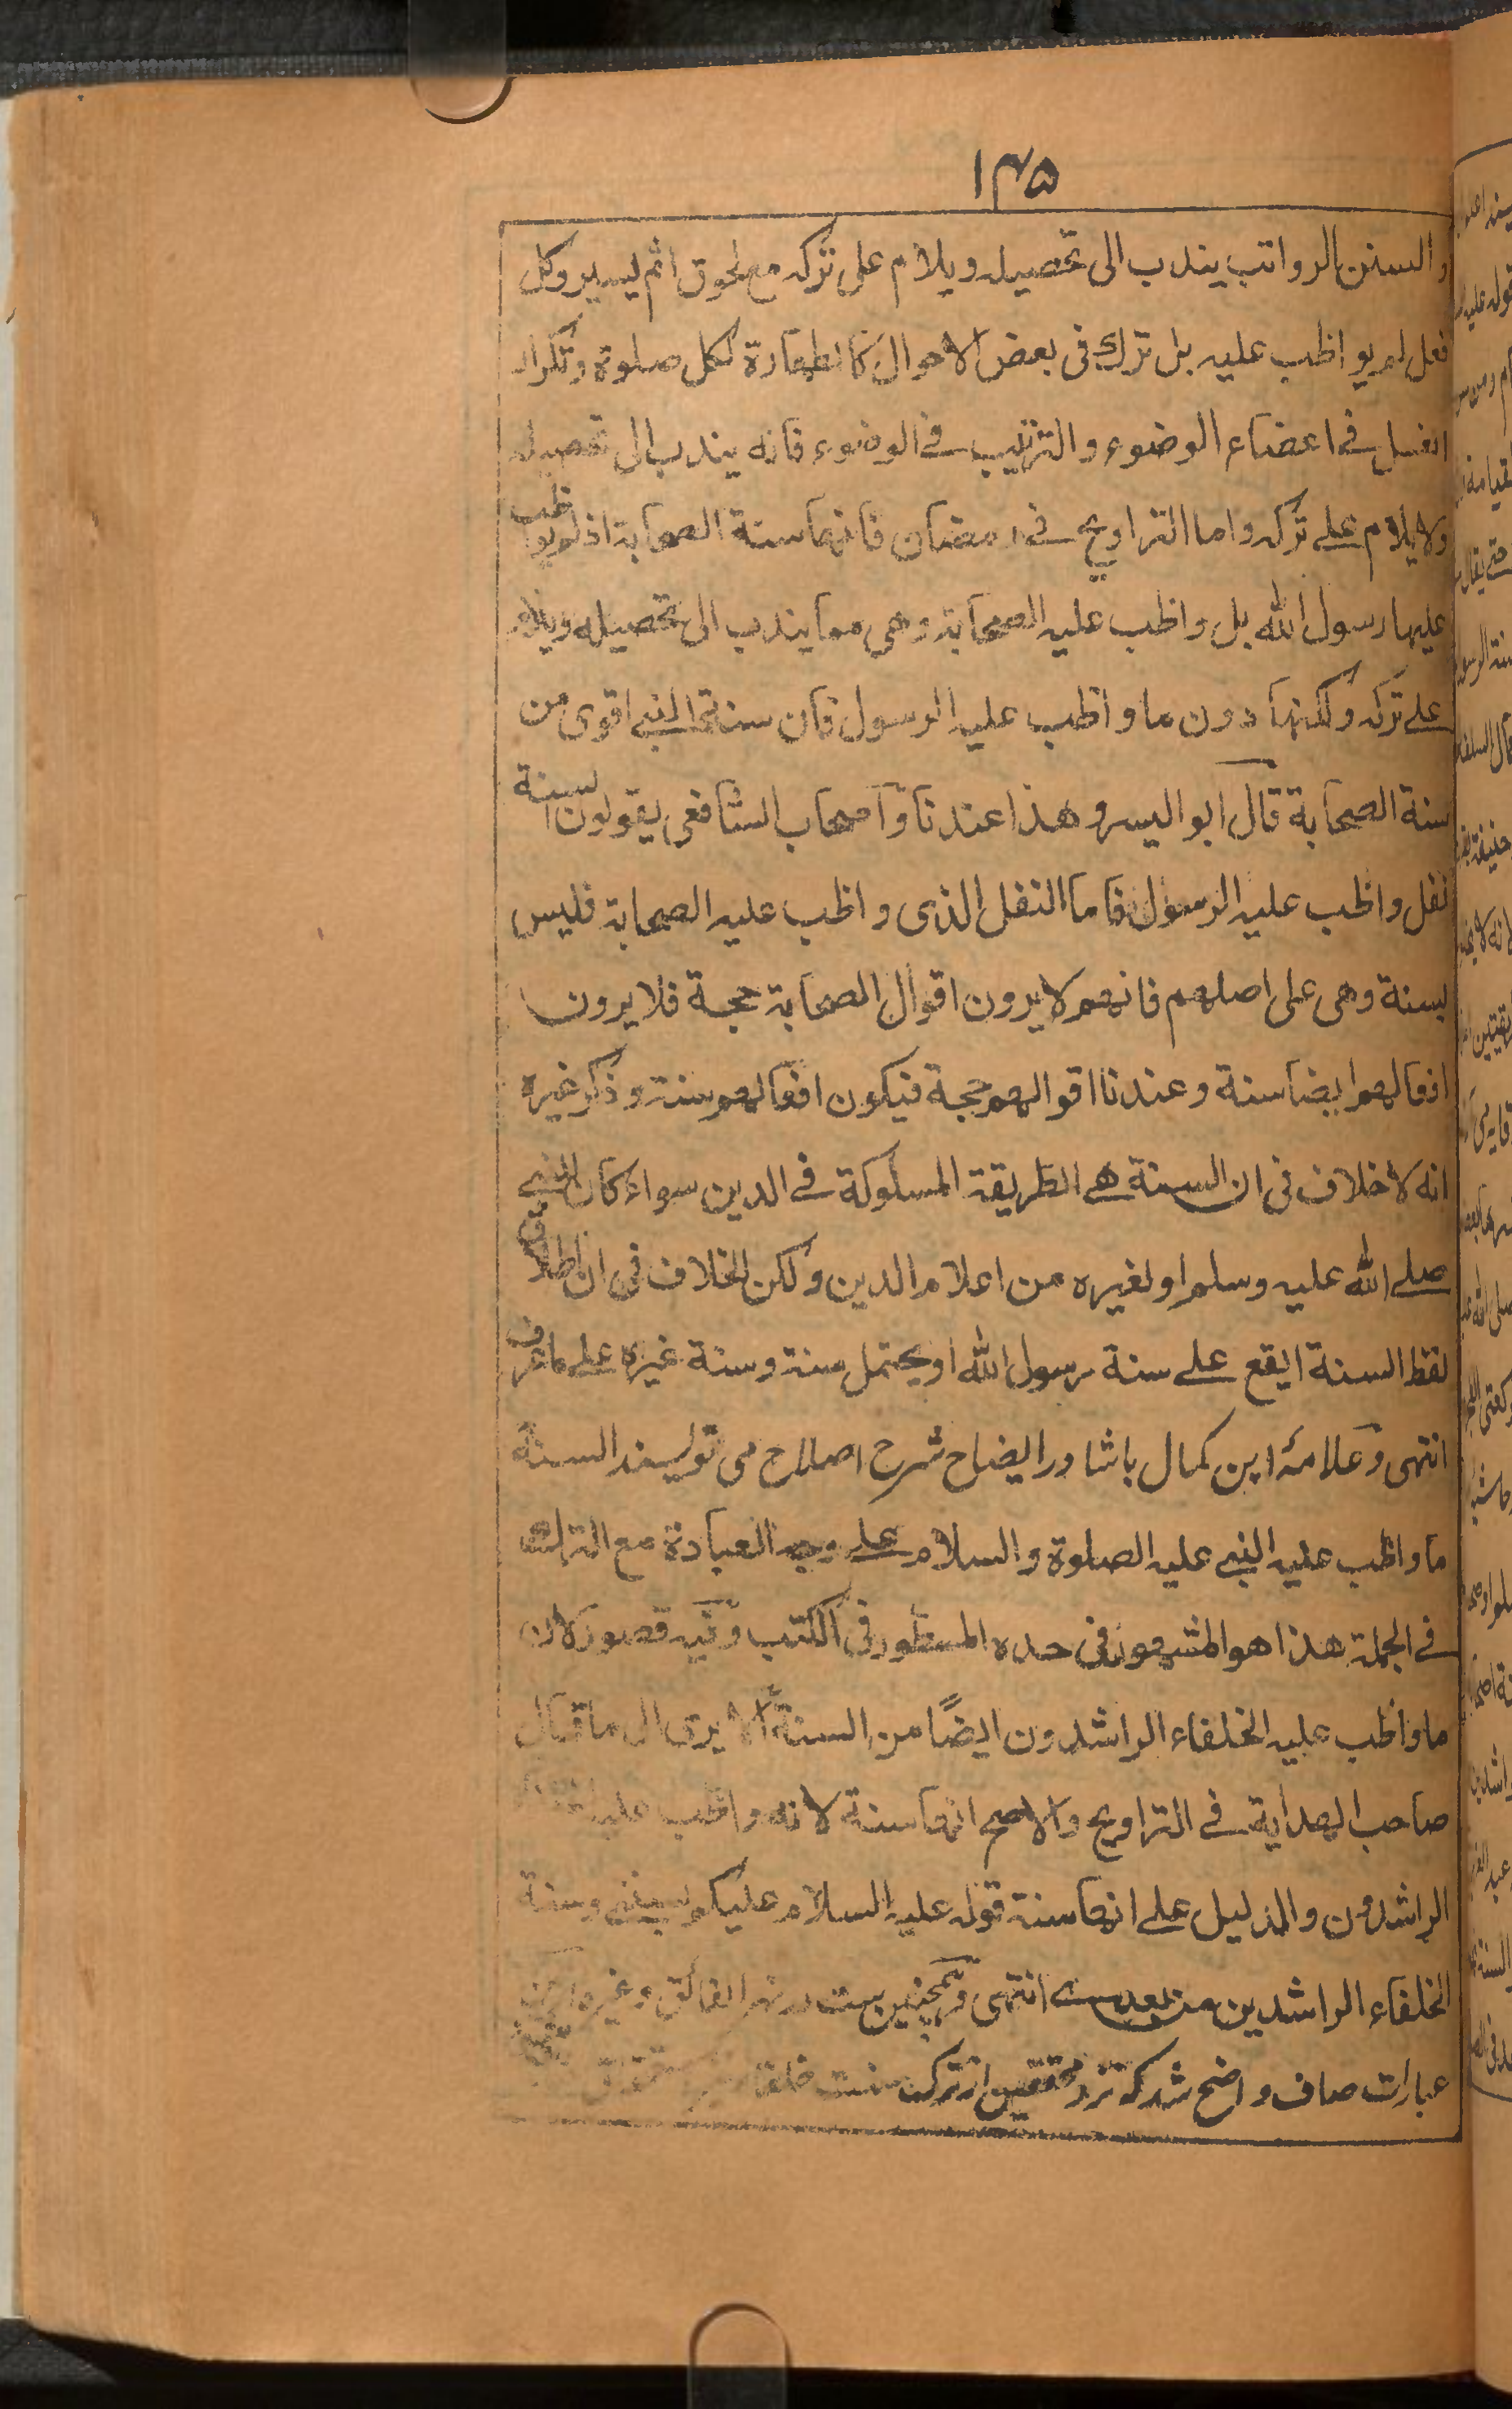 ۱۴۵
والسنن الرواتب يندب الى تحصيله ويلام على تركه مع لحوق اثم يسير وكل
فعل لم يواظب عليه بل ترك فى بعض الاحوال كالطهارة لكل صلوة وتكرار
الغسل فے اعضاء الوضوء والترتيب فے الوضوء فانه يندب الى تحصيله
ولا يلام علے تركه واما التراويح فے رمضان فانها سنة الصحابة اذ لم يواظب
عليها رسول الله بل واظب عليه الصحابة وهى مما يندب الى تحصيله ويلام
علے تركه ولكنها دون ما واظب عليه الرسول فان سنة النبے اقوى من
سنة الصحابة قال ابو اليسر وهذا عندنا واصحاب الشافعى يقولون السنة
نفل واظب عليه الرسول فاما النفل الذى واظب عليه الصحابة فليس
بسنة وهى على اصلهم فانهم لا يرون اقوال الصحابة حجة فلا يرون
افعالهم ايضا سنة وعندنا اقوالهم حجة فيكون افعالهم سنة وذكر غيره
انه لا خلاف فى ان السنة هے الطريقة المسلوكة فے الدين سواء كان للنبے
صلے الله عليه وسلم او لغيره من اعلام الدين ولكن الخلاف فى ان اطلاق
لفظ السنة ايقع علے سنة رسول الله او يحتمل سنة وسنة غيره علے ما عرف
انتهى وعلامۂ ابن كمال باشا در ايضاح شرح اصلاح مى نويسند السنة
ما واظب عليه النبے عليه الصلوة والسلام علے وجه العبادة مع الترك
فے الجملة هذا هو المشهور فى حده المسطور فى الكتب وفيه قصور لان
ما واظب عليه الخلفاء الراشدون ايضًا من السنة الا يرى الى ما قال
صاحب الهداية فے التراويح والاصح انها سنة لانه واظب عليه
الراشدون والدليل علے انها سنة قوله عليه السلام عليكم بسنتى وسنة
الخلفاء الراشدين من بعدے انتهى وهمچنين ست در نهر الفائق وغيره
عبارات صاف واضح شد كه نزد محققين از ترك سنت خلفا